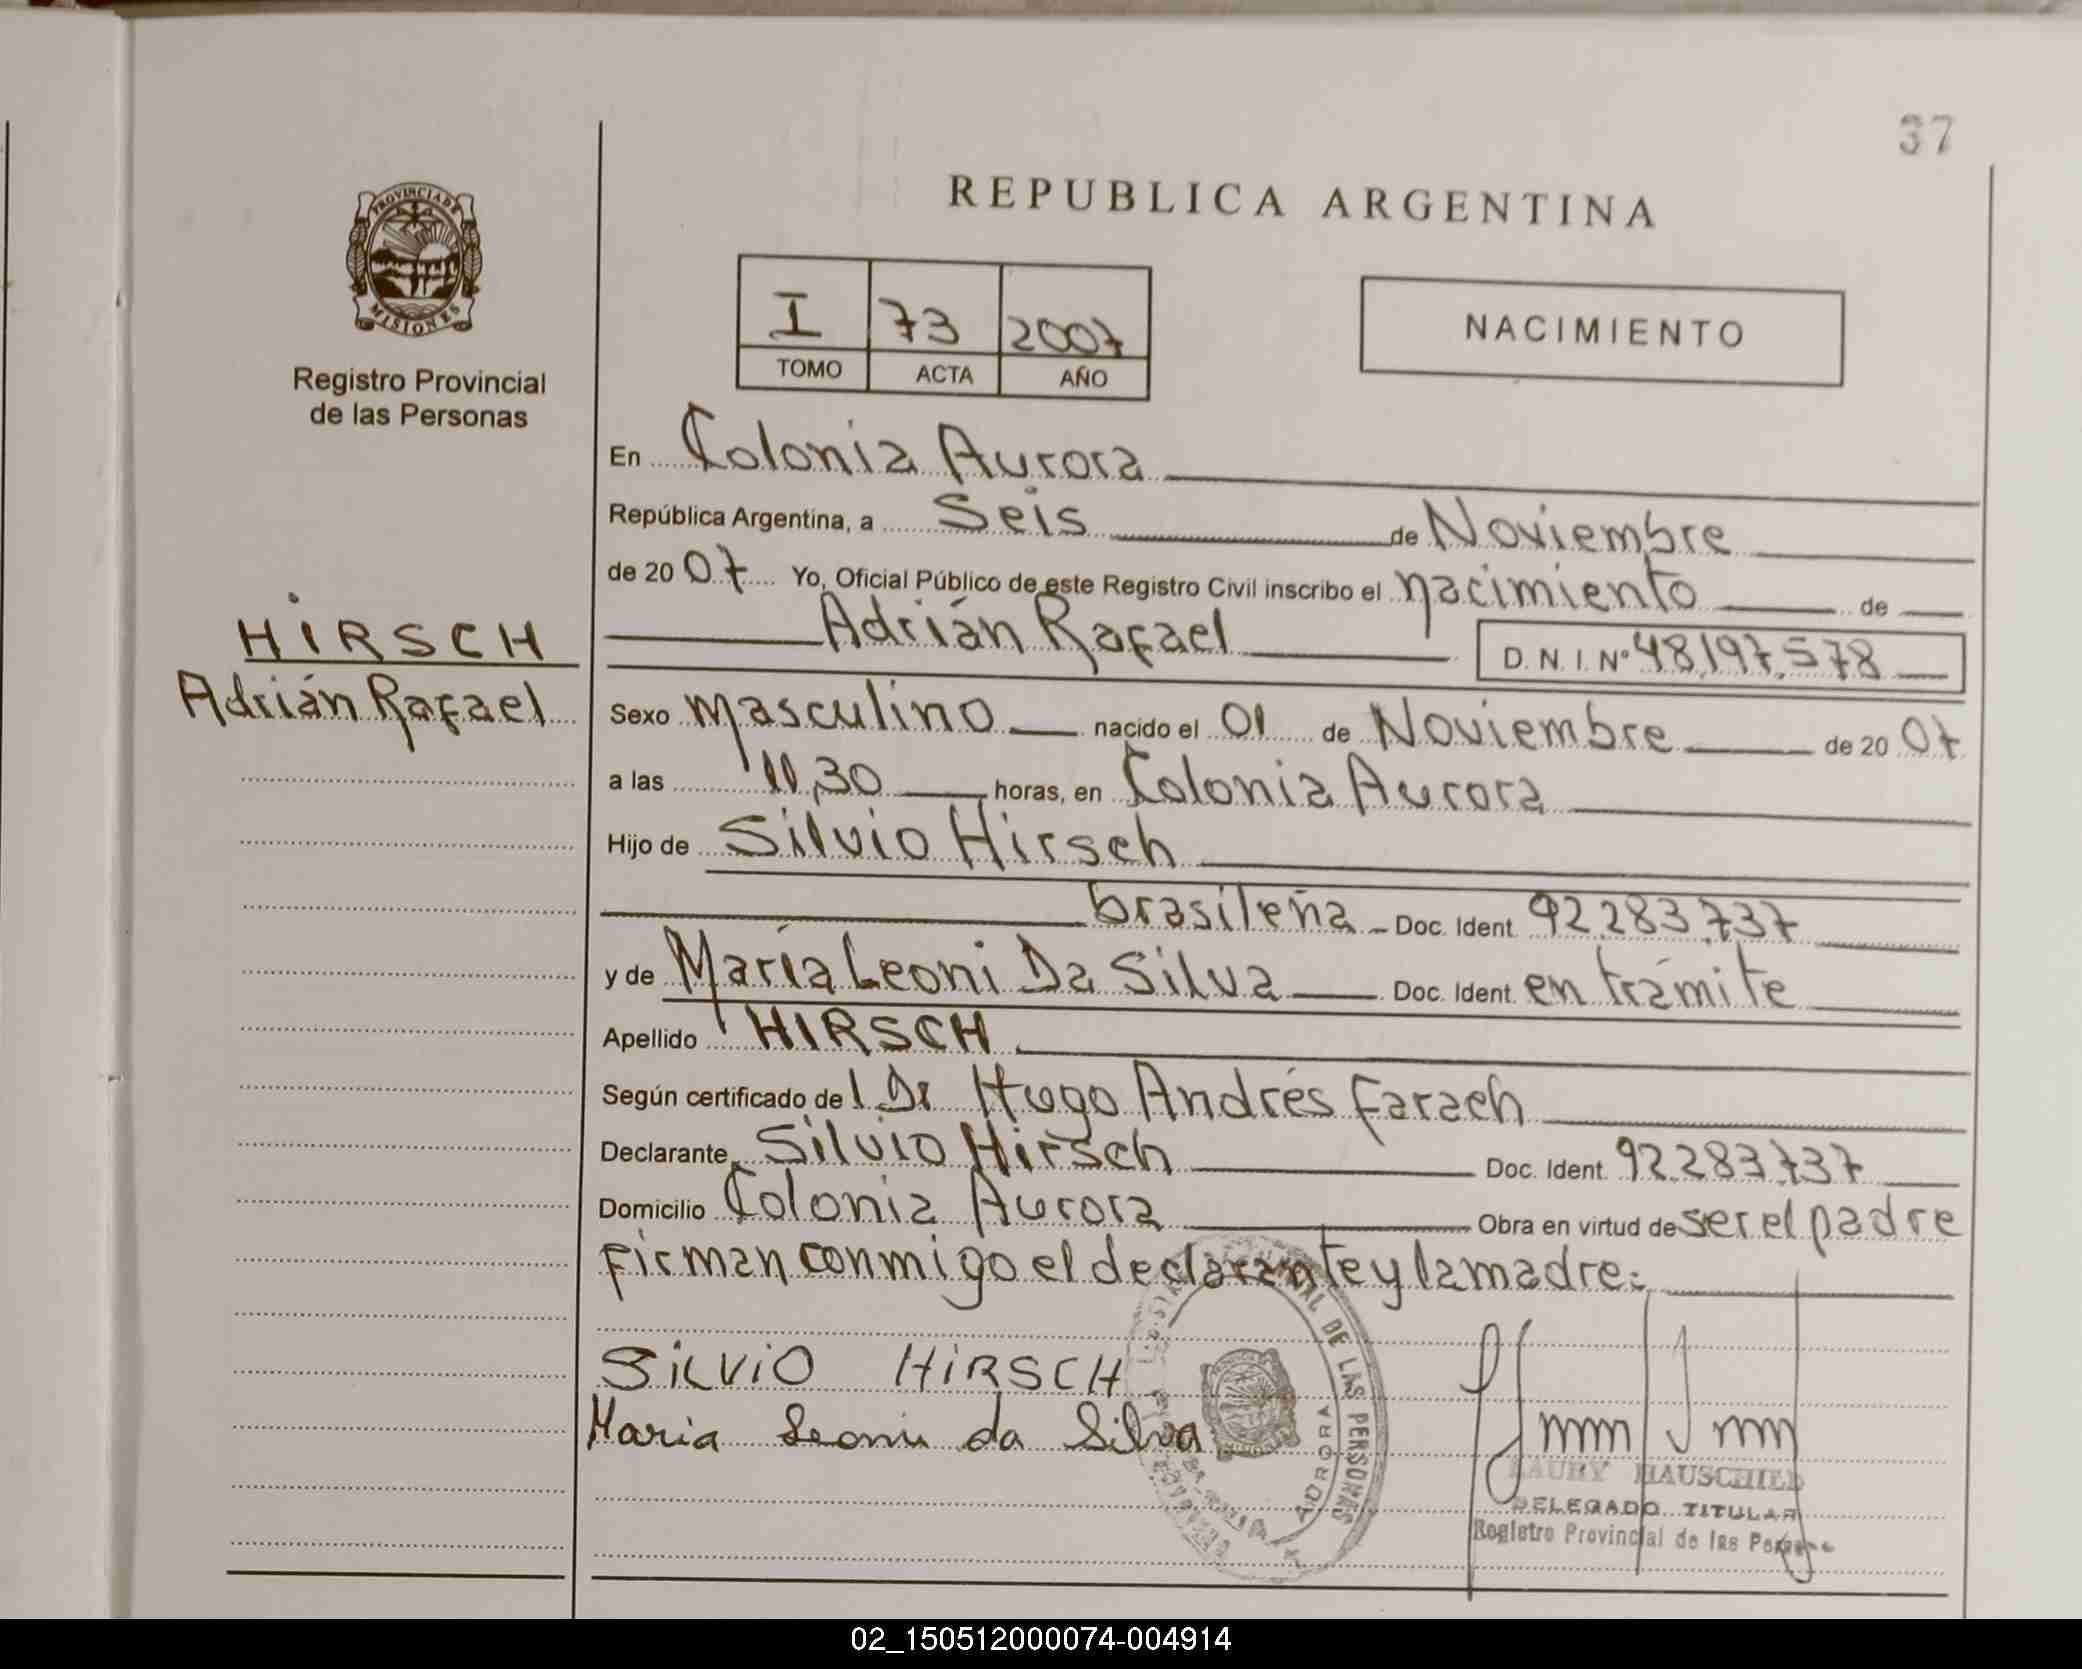 37
PROVINCIA DE
MISIONES
Registro Provincial
de las Personas
HIRSCH
Adrián Rafael
REPUBLICA ARGENTINA
I 73 2007
TOMO ACTA AÑO
NACIMIENTO
En Colonia Aurora
República Argentina, a Seis de Noviembre
de 20 07 Yo, Oficial Público de este Registro Civil inscribo el nacimiento de
Adrián Rafael D.N.I. Nº 48,197,578
Sexo masculino nacido el 01 de Noviembre de 20 07
a las 11,30 horas, en Colonia Aurora
Hijo de Silvio Hirsch
brasileña Doc. Ident. 92.283.737
y de María Leoni Da Silva Doc. Ident. en trámite
Apellido HIRSCH
Según certificado de l Dr Hugo Andrés Farach
Declarante Silvio Hirsch Doc. Ident. 92.283.737
Domicilio Colonia Aurora Obra en virtud de ser el padre
firman conmigo el declarante y la madre:
SILVIO HIRSCH
Maria Leoni da Silva
DE LAS PERSONAS
AURORA
HAUSCHILD
DELEGADO TITULAR
Registro Provincial de las Personas
02_150512000074-004914